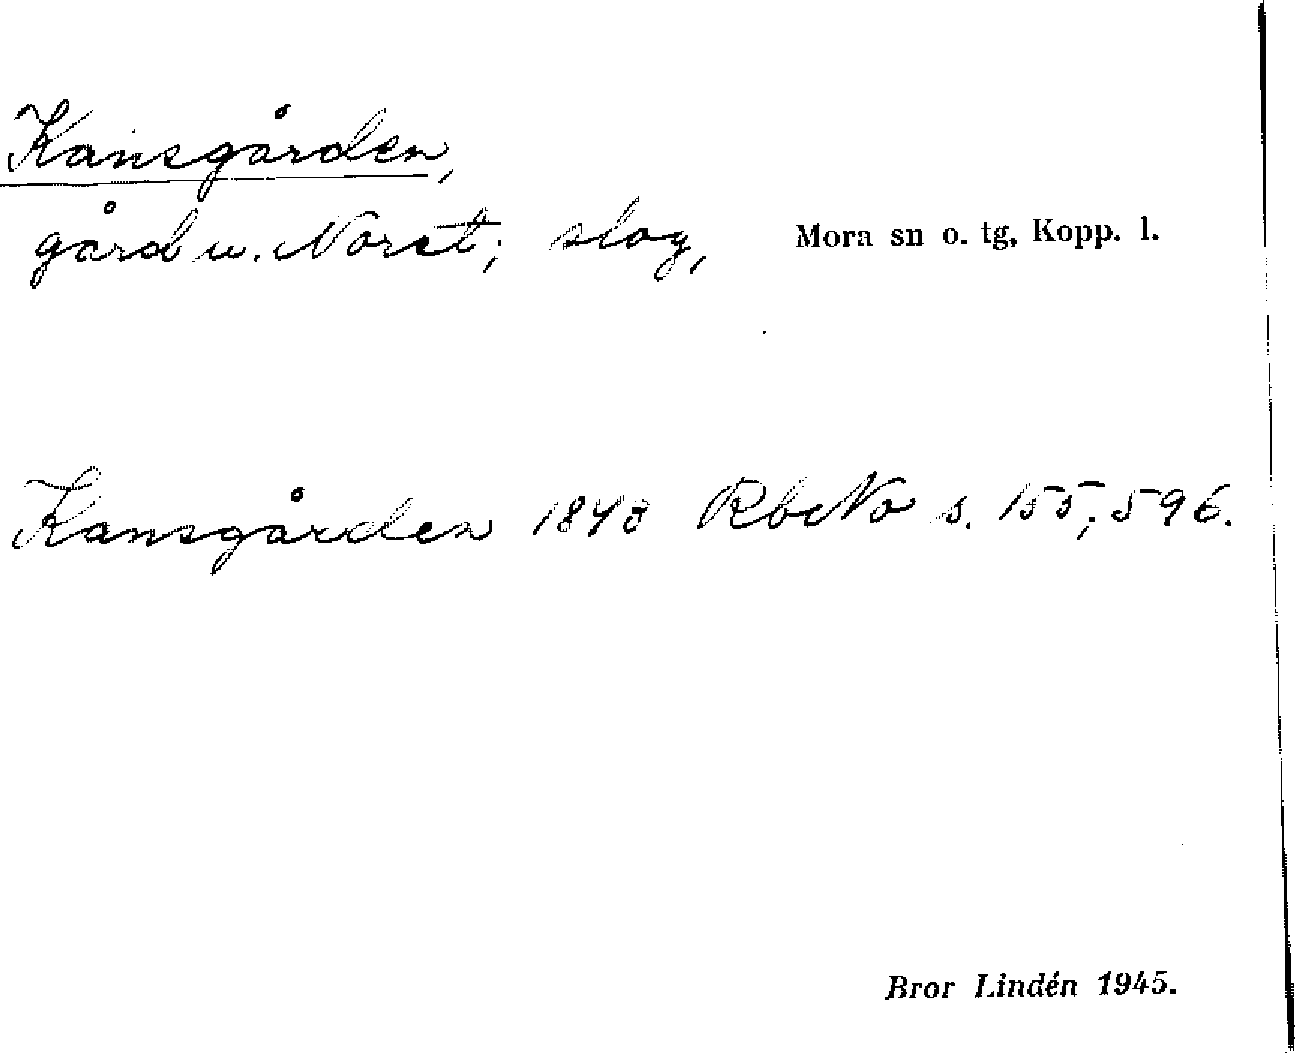 Kansgården,
gård u. Noret; slog, Mora sn o. tg, Kopp. l.
Kansgården 1843 RbNo s. 155; 596.
Bror Lindén 1945.